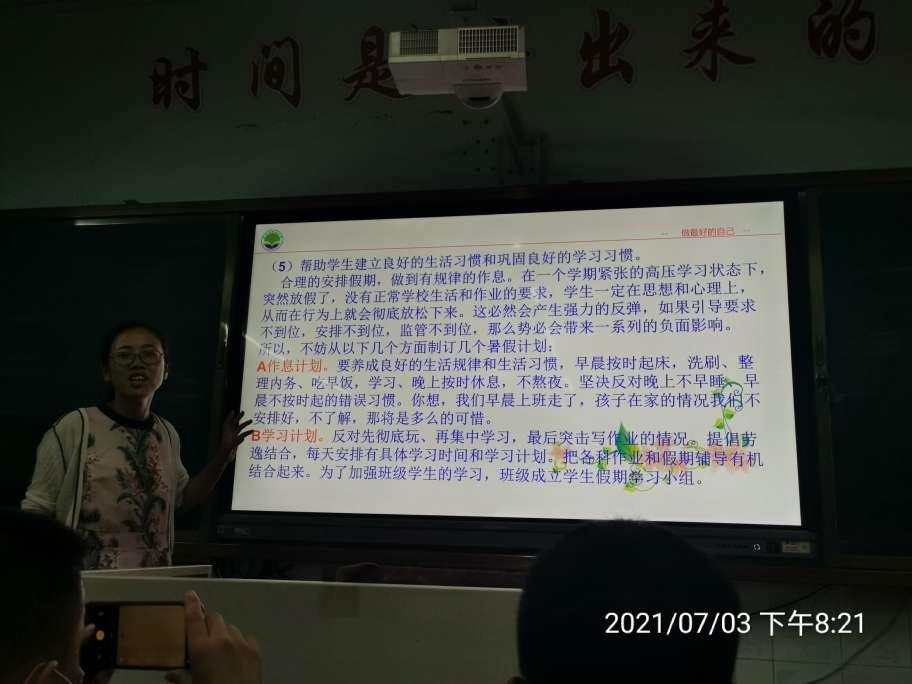 时间是
出来的
做最好的自己
(5)帮助学生建立良好的生活习惯和巩固良好的学习习惯。
合理的安排假期,做到有规律的作息。在一个学期紧张的高压学习状态下,
突然放假了,没有正常学校生活和作业的要求,学生一定在思想和心理上,
从而在行为上就会彻底放松下来。这必然会产生强力的反弹,如果引导要求
不到位,安排不到位,监管不到位,那么势必会带来一系列的负面影响。
所以,不妨从以下几个方面制订几个暑假计划:
A作息计划。要养成良好的生活规律和生活习惯,早晨按时起床,洗刷、整
理内务、吃早饭,学习、晚上按时休息,不熬夜。坚决反对晚上不早睡、早
晨不按时起的错误习惯。你想,我们早晨上班走了,孩子在家的情况我们不
安排好,不了解,那将是多么的可惜。
B学习计划。反对先彻底玩、再集中学习,最后突击写作业的情况。提倡劳
逸结合,每天安排有具体学习时间和学习计划。把各科作业和假期辅导有机
结合起来。为了加强班级学生的学习,班级成立学生假期学习小组。
2021/07/03 下午8:21